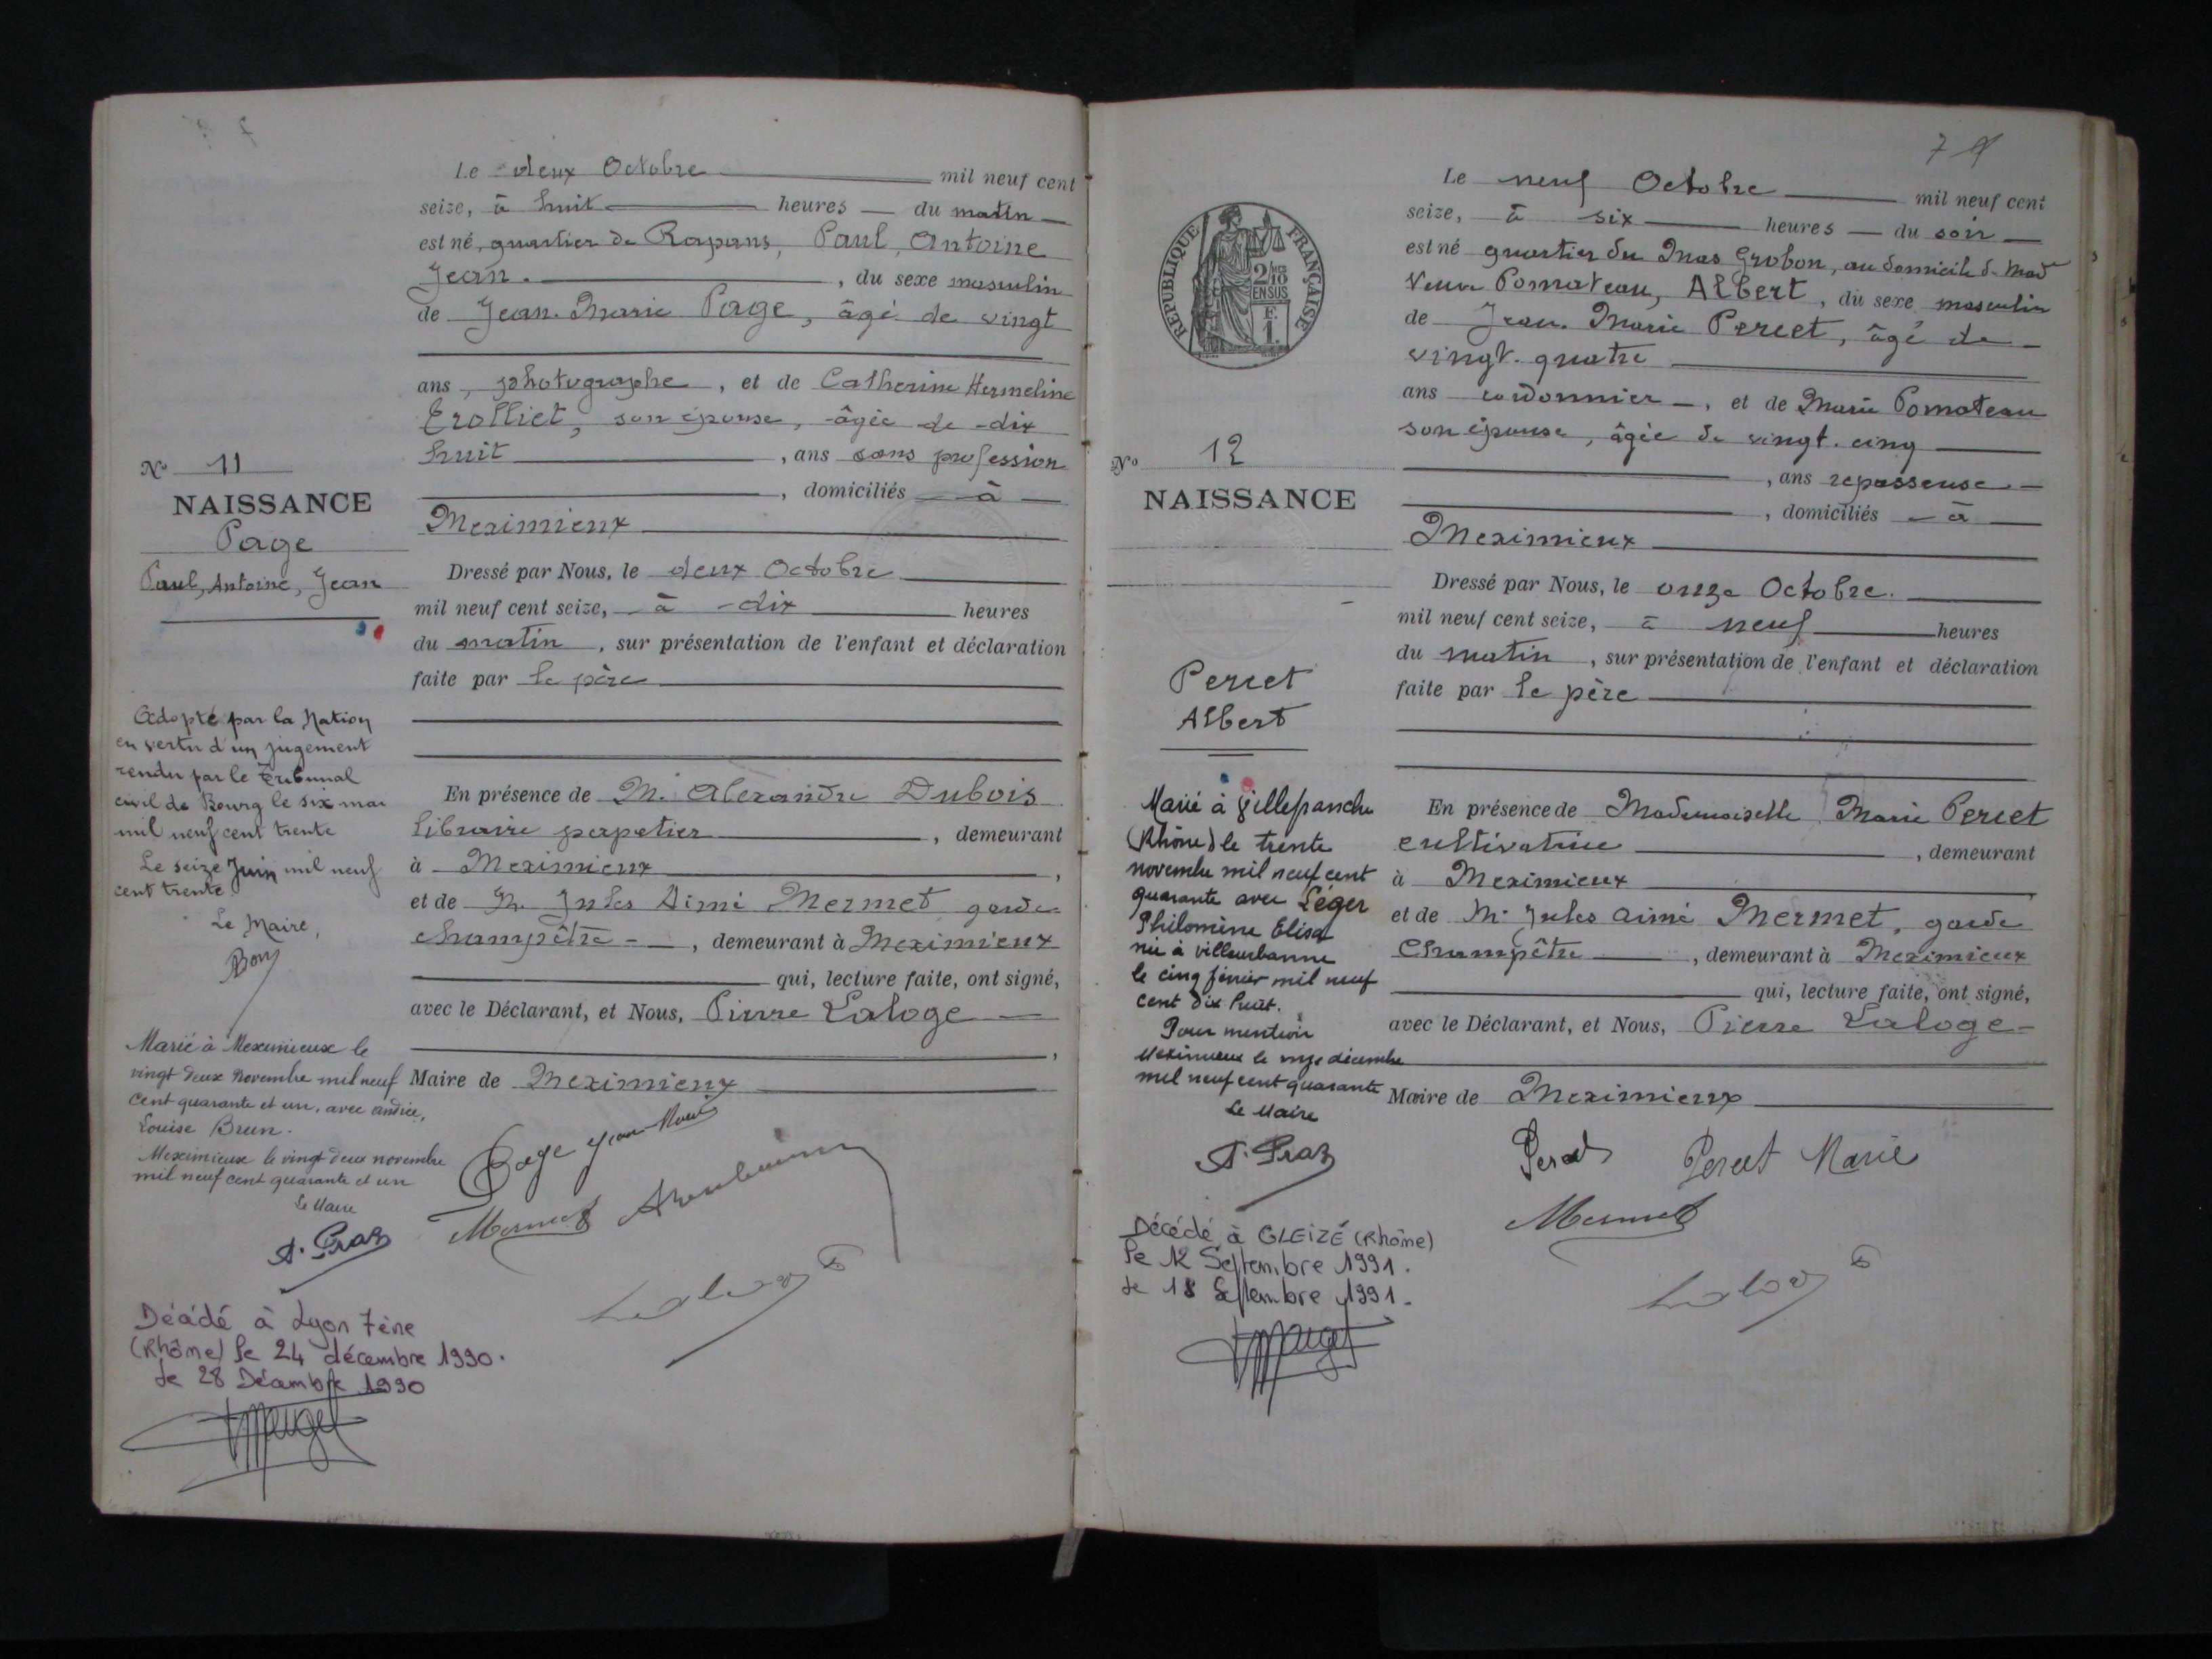 Le deux Octobre mil neuf cent
seize, à huit heures du matin
est né, quartier de Rapans, Paul, Antoine
Jean. , du sexe masculin
de Jean. Marie Page, âgé de vingt
ans, photographe, et de Catherine Hermeline
Erolliet, son épouse, âgée de dix
huit , ans sans profession
, domiciliés à
Meximieux
Dressé par Nous, le deux Octobre
mil neuf cent seize, à dix heures
du matin, sur présentation de l'enfant et déclaration
faite par le père
En présence de M. Alexandre Dubois
libraire papetier , demeurant
à Meximieux ,
et de M. Jules Aimé Mermet, garde
champêtre , demeurant à Meximieux
qui, lecture faite, ont signé,
avec le Déclarant, et Nous, Pierre Laloge
,
Maire de Meximieux
Page Jean-Marie
Mermet
N° 11
NAISSANCE
Page
Paul, Antoine, Jean
Adopté par la Nation
en vertu d'un jugement
rendu par le Tribunal
civil de Bourg le six mai
mil neuf cent trente
Le seize Juin mil neuf
cent trente
Le Maire,
Marié à Meximieux le
vingt deux Novembre mil neuf
cent quarante et un, avec Andrée,
Louise Brun.
Meximieux le vingt deux novembre
mil neuf cent quarante et un
Le Maire
A. Praz
Décédé à Lyon 7ème
(Rhône) le 24 décembre 1990.
Le 28 Décembre 1990
7
RÉPUBLIQUE FRANÇAISE
2/10
EN SUS
F.
1.
Le neuf Octobre mil neuf cent
seize, à six heures du soir
est né quartier du Mas Grobon, au domicile de Mad
Veuve Pomateau, Albert, du sexe masculin
de Jean. Marie Perret, âgé de
vingt. quatre
ans cordonnier , et de Marie Pomateau
son épouse, âgée de vingt. cinq
, ans repasseuse
, domiciliés à
Meximieux
Dressé par Nous, le onze Octobre.
mil neuf cent seize, à neuf heures
du matin , sur présentation de l'enfant et déclaration
faite par le père
En présence de Mademoiselle Marie Perret
cultivatrice , demeurant
à Meximieux
et de M. Jules Aimé Mermet, garde
Champêtre , demeurant à Meximieux
qui, lecture faite, ont signé,
avec le Déclarant, et Nous, Pierre Laloge
Maire de Meximieux
Perret Perret Marie
Mermet
N° 12
NAISSANCE
Perret
Albert
Marié à Villefranche
(Rhône) le trente
novembre mil neuf cent
quarante avec Léger
Philomène Elisa
née à Villeurbanne
le cinq février mil neuf
cent dix huit.
Pour mention
Meximieux le onze décembre
mil neuf cent quarante
Le Maire
A. Praz
Décédé à GLEIZÉ (Rhône)
le 12 Septembre 1991.
Le 18 Septembre 1991.